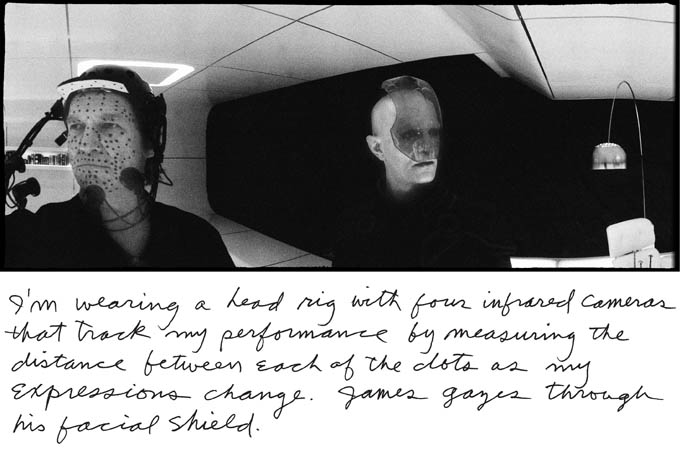 I'm wearing a head rig with four infrared cameras
that track my performance by measuring the
distance between each of the dots as my
expressions change. James gazes through
his facial shield.